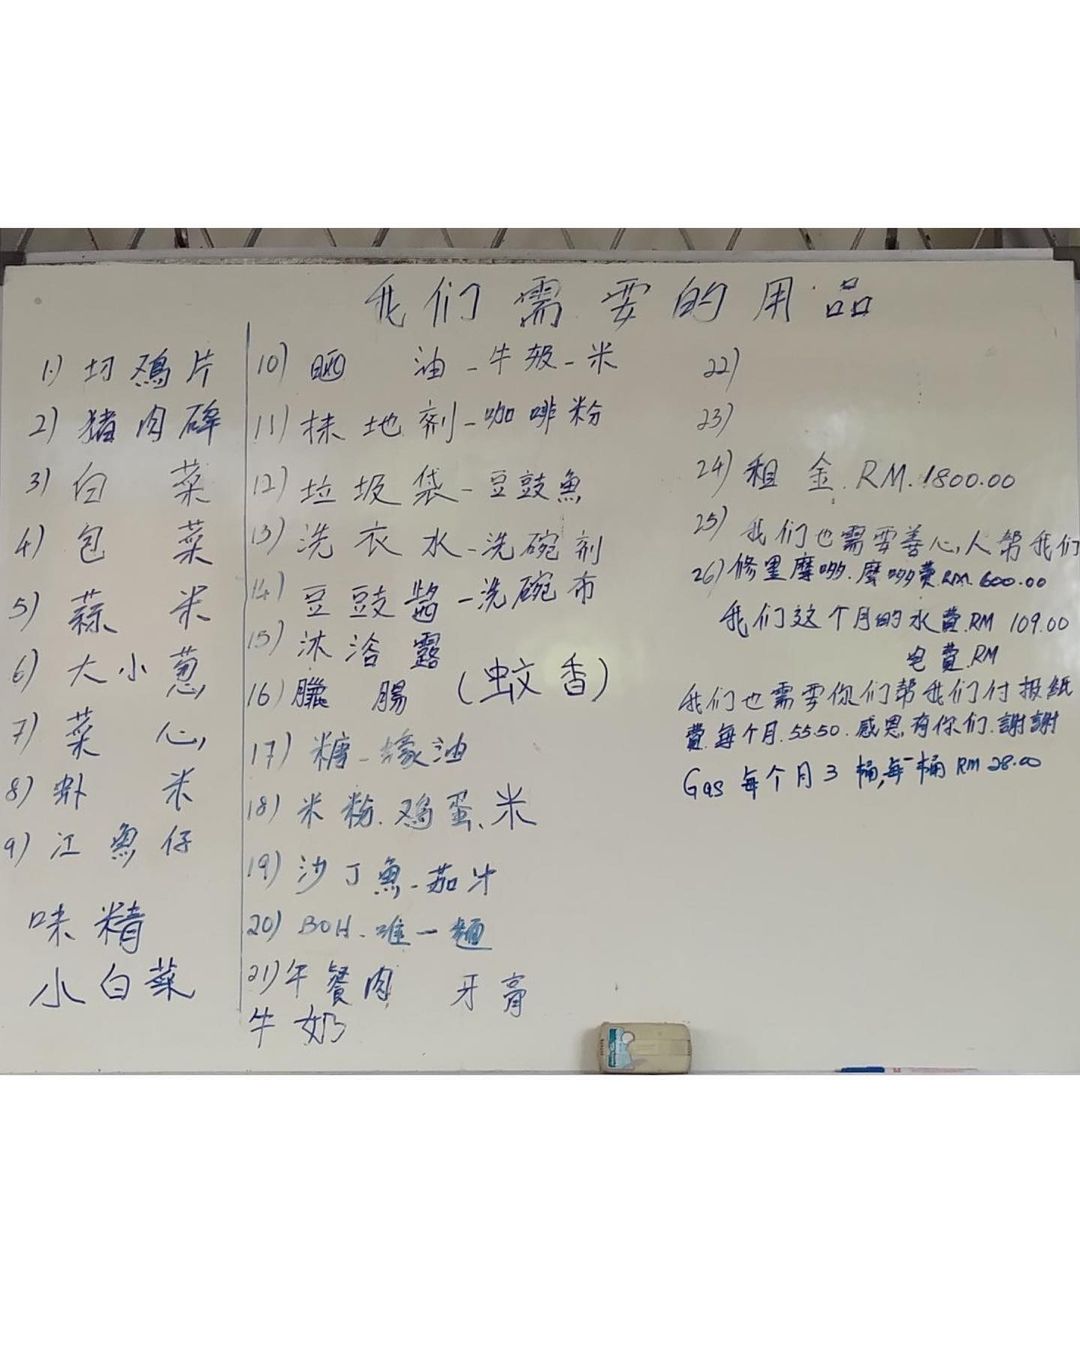 我们需要的用品
1) 切鸡片
2) 猪肉碎
3) 白菜
4) 包菜
5) 蒜米
6) 大小蔥
7) 菜心
8) 虾米
9) 江魚仔
味精
小白菜
10) 晒油-牛级-米
11) 抹地剂-咖啡粉
12) 垃圾袋-豆豉魚
13) 洗衣水-洗碗剂
14) 豆豉酱-洗碗布
15) 沐浴露
16) 臘腸 (蚊香)
17) 糖-蠔油
18) 米粉.鸡蛋.米
19) 沙丁魚-茄汁
20) BOH-唯一麵
21) 午餐肉 牙膏
牛奶
22)
23)
24) 租金.RM.1800.00
25) 我们也需要善心人幫我们
26) 修里摩哆.摩哆費RM.600.00
我们这个月的水費.RM 109.00
电費.RM
我们也需要你们幫我们付报紙
費.每个月.55.50.感恩有你们.謝謝
Gas 每个月3桶,每一桶 RM 28.00